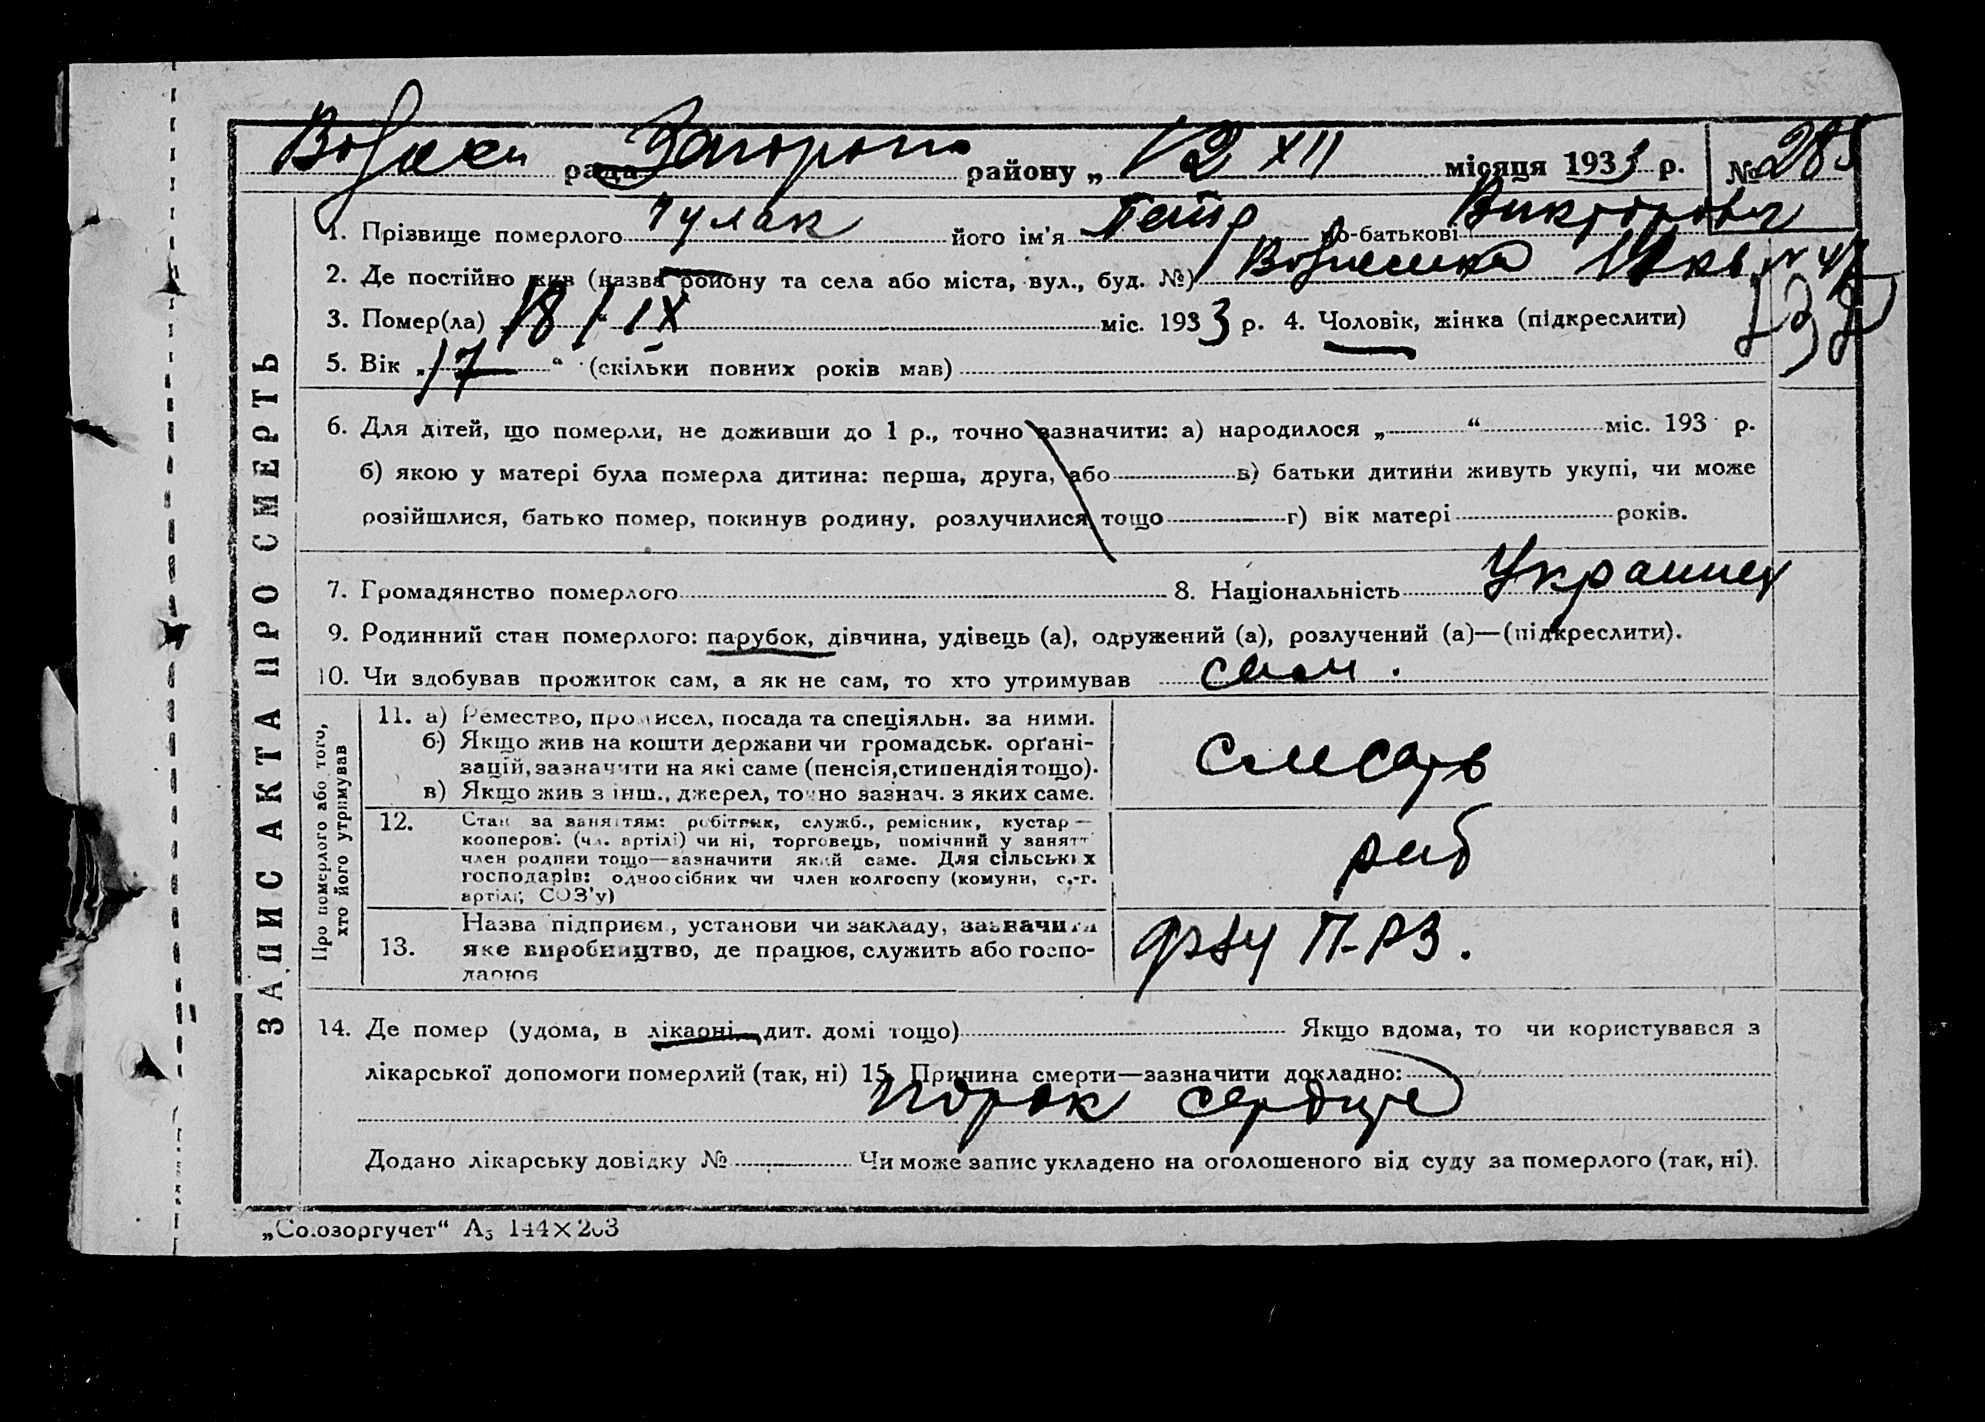 рада Запоріз району „12 XII місяця 1933 р. № 285
1. Прізвище померлого Чулак його ім'я Петр по-батькові Викторович
2. Де постійно жив (назва району та села або міста, вул., буд. №) Вознесенка
3. Помер(ла) 18 / IX міс. 1933 р. 4. Чоловік, жінка (підкреслити)
5. Вік „17“ (скільки повних років мав)
ЗАПИС АКТА ПРО СМЕРТЬ
6. Для дітей, що померли, не доживши до 1 р., точно зазначити: а) народилося „ “ міс. 193 р.
б) якою у матері була померла дитина: перша, друга, або в) батьки дитини живуть укупі, чи може
розійшлися, батько помер, покинув родину, розлучилися, тощо г) вік матері років.
7. Громадянство померлого 8. Національність Украинец
9. Родинний стан померлого: парубок, дівчина, удівець (а), одружений (а), розлучений (а)—(підкреслити).
10. Чи здобував прожиток сам, а як не сам, то хто утримував сам.
Про померлого або того,
хто його утримував
11. а) Ремество, промисел, посада та спеціяльн. за ними.
б) Якщо жив на кошти держави чи громадськ. орґані-
зацій, зазначити на які саме (пенсія, стипендія тощо).
в) Якщо жив з інш., джерел, точно зазнач. з яких саме.
слесарь
12. Стан за заняттям: робітник, служб., ремісник, кустар —
кооперов. (чл. артілі) чи ні, торговець, помічний у занятт
член родини тощо—зазначити який саме. Для сільських
господарів: одноосібник чи член колгоспу (комуни, с.-г.
артілі; СОЗ'у)
раб
13. Назва підприєм., установи чи закладу, зазначити
яке виробництво, де працює, служить або госпо-
дарює
фзу П-РЗ.
14. Де помер (удома, в лікарні, дит. домі тощо) Якщо вдома, то чи користувався з
лікарської допомоги померлий (так, ні) 15. Причина смерти—зазначити докладно:
порок сердце
Додано лікарську довідку № Чи може запис укладено на оголошеного від суду за померлого (так, ні).
„Союзоргучет“ А5 144×203